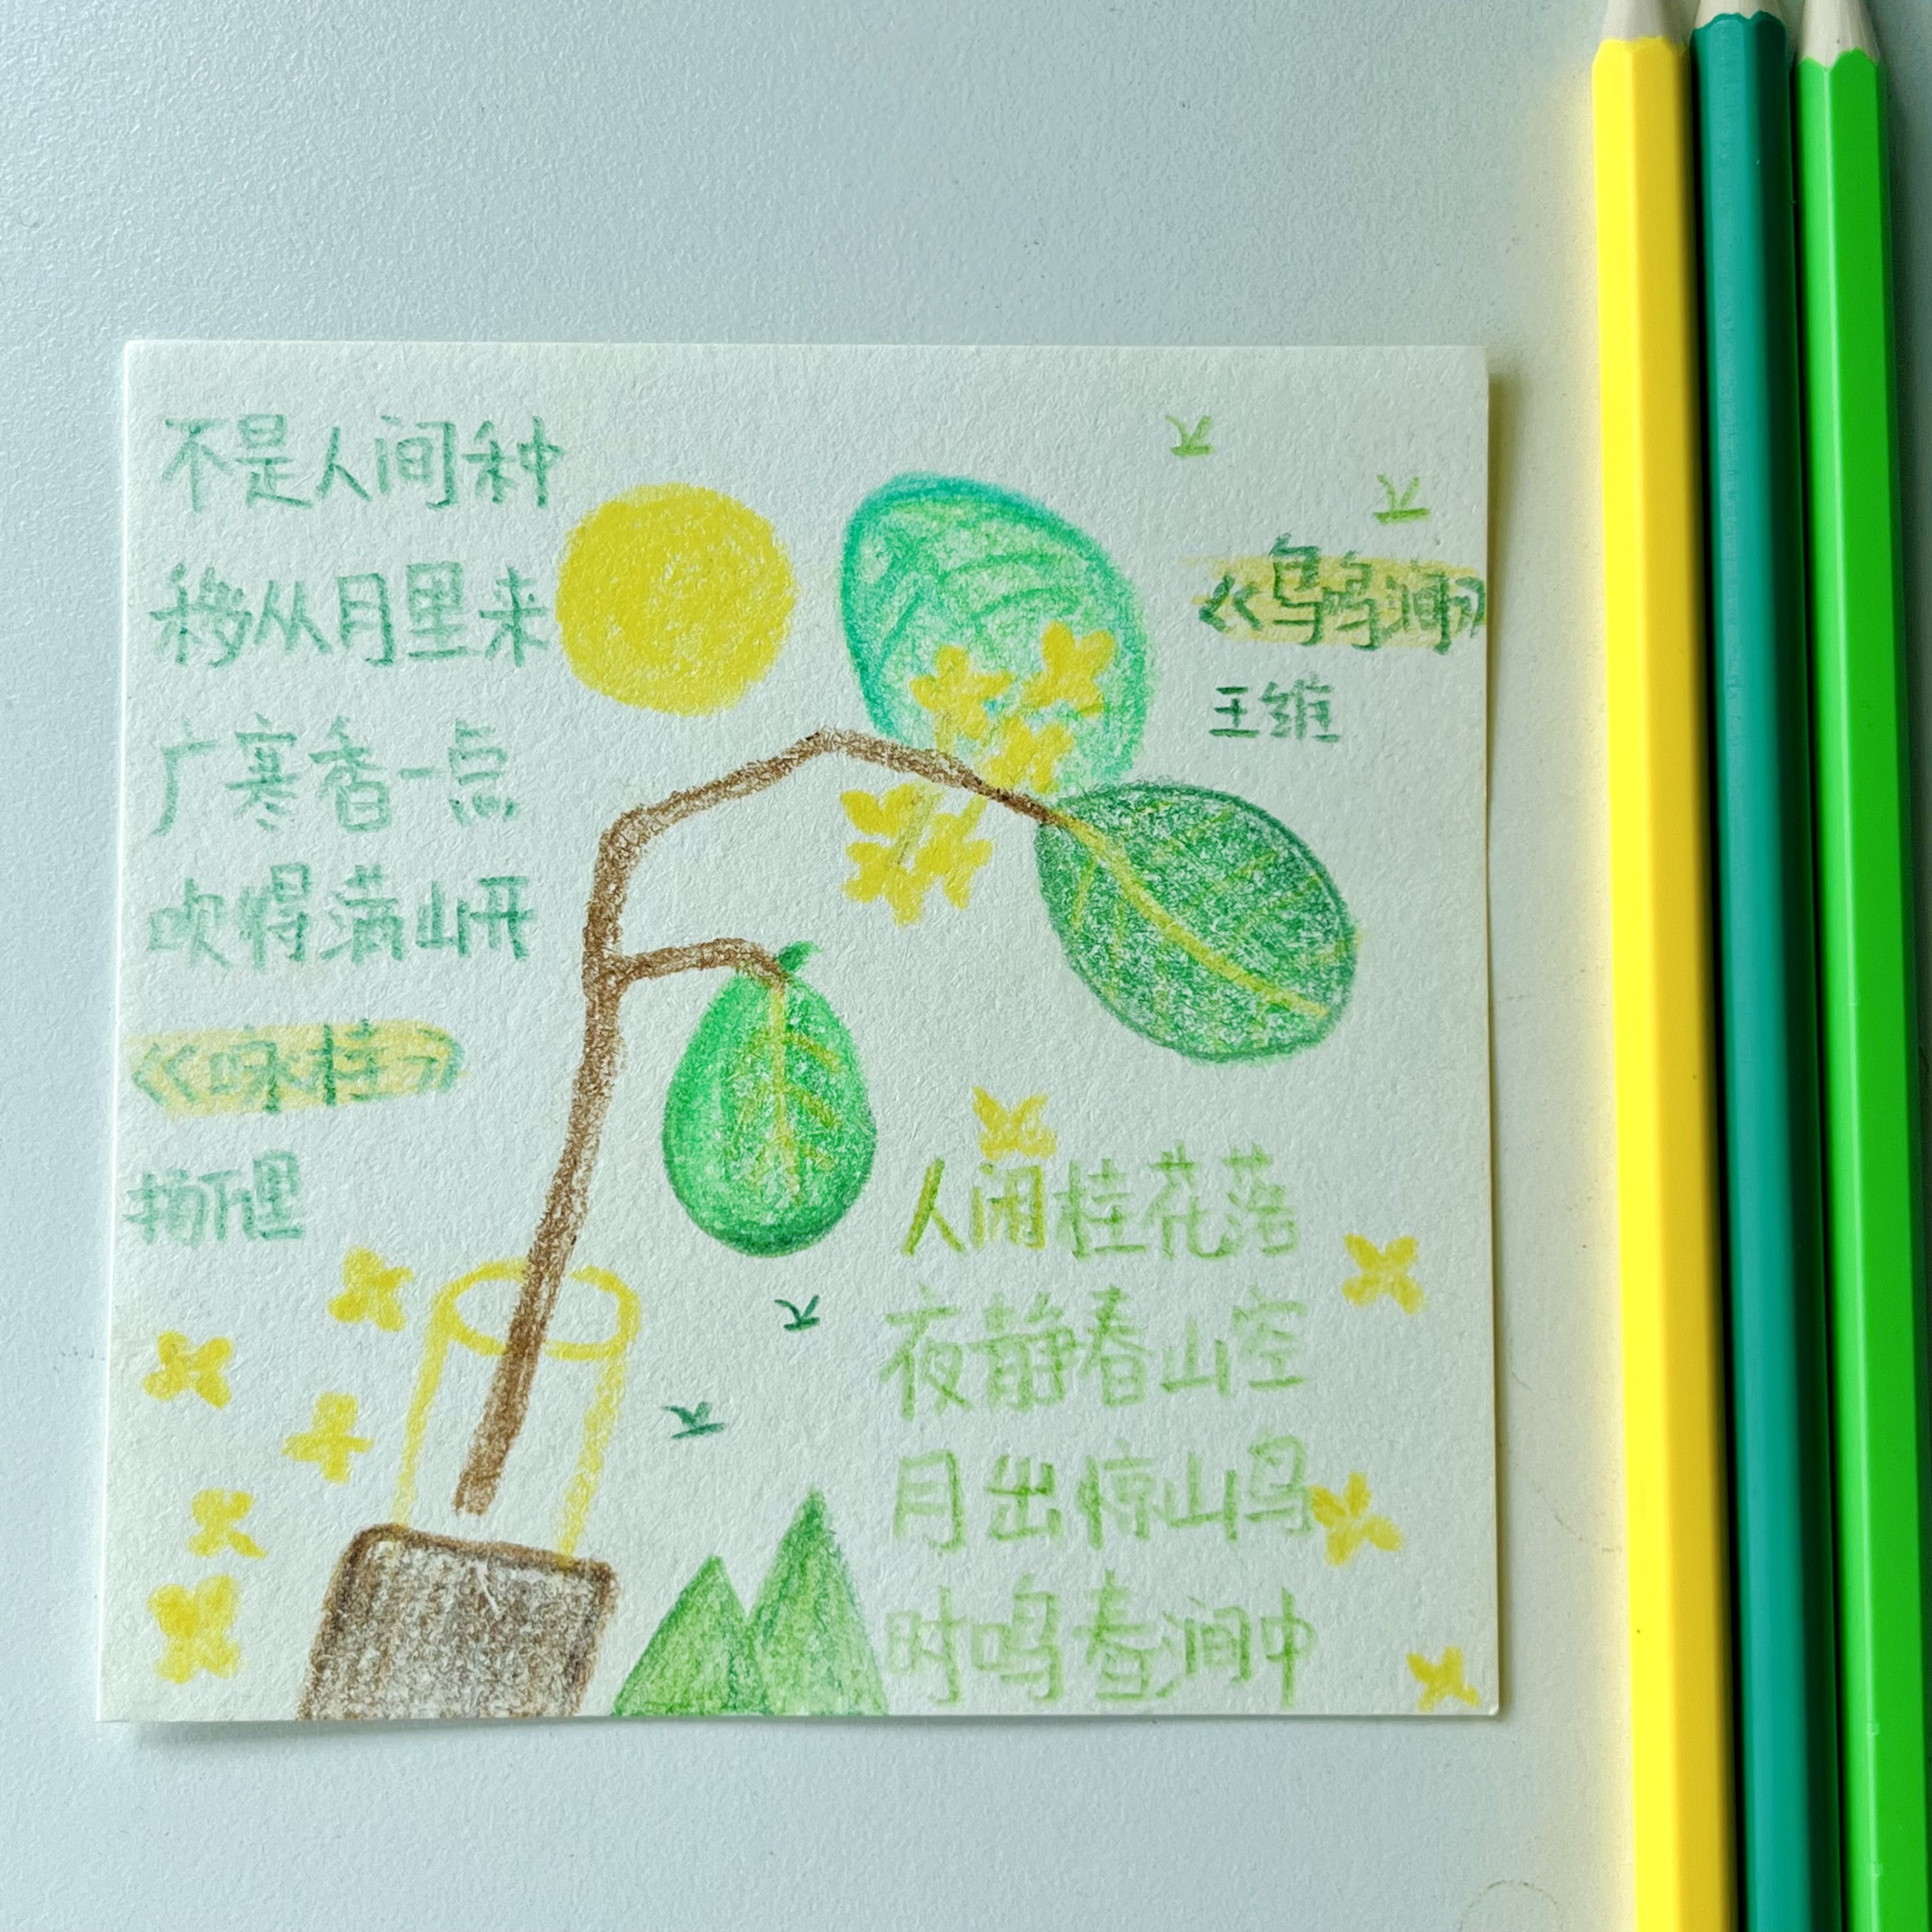 不是人间种
移从月里来
广寒香一点
吹得满山开
《咏桂》
杨万里
《鸟鸣涧》
王维
人闲桂花落
夜静春山空
月出惊山鸟
时鸣春涧中